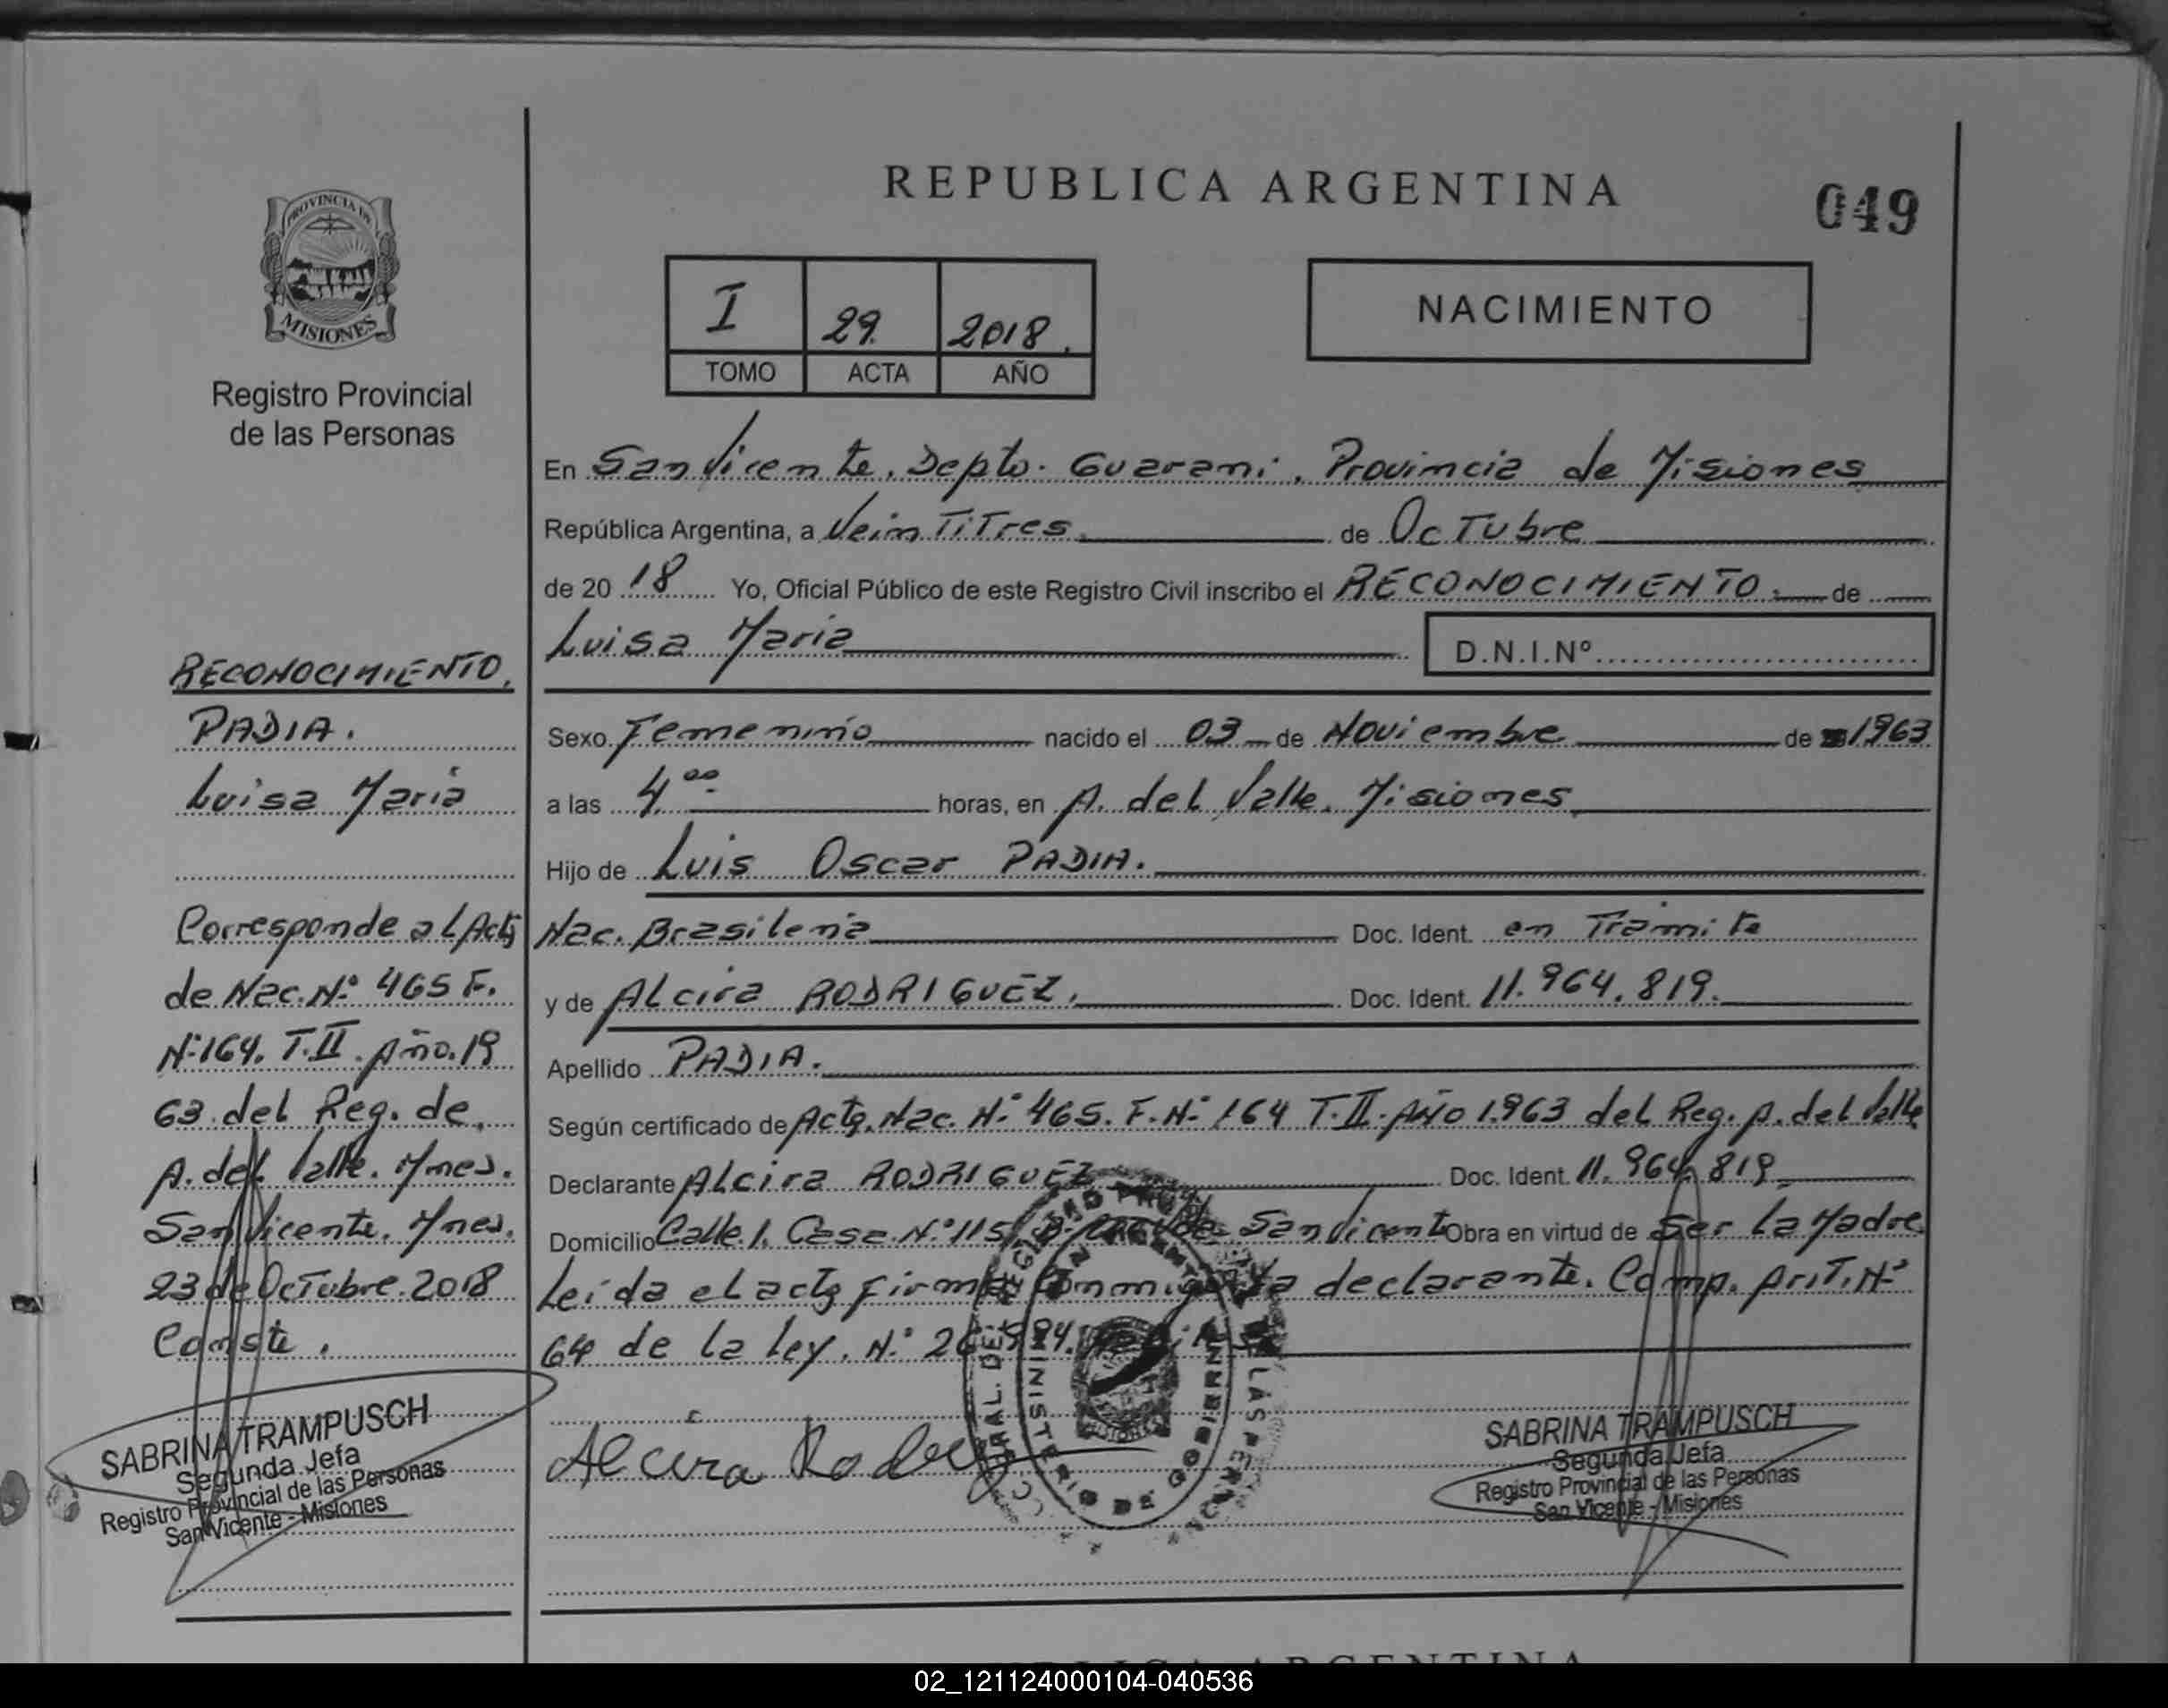 REPUBLICA ARGENTINA
049
PROVINCIA DE
MISIONES
Registro Provincial
de las Personas
I 29. 2018.
TOMO ACTA AÑO
NACIMIENTO
En San Vicente, Depto. Guarani, Provincia de Misiones
República Argentina, a VeinTiTres de OcTubre
de 20 18 Yo, Oficial Público de este Registro Civil inscribo el RECONOCIMIENTO de
Luisa Maria D.N.I.Nº
Sexo Femenino nacido el 03 de Noviembre de 1963
a las 4,00 horas, en A. del Valle. Misiones
Hijo de Luis Oscar PADIA.
Nac. Brasilena Doc. Ident. en Tramite
y de Alcira RODRIGUEZ, Doc. Ident. 11.964.819.
Apellido PADIA.
Según certificado de Acta. Nac. Nº 465. F. Nº 164 T. II. Año 1.963 del Reg. A. del Valle
Declarante Alcira RODRIGUEZ Doc. Ident. 11.964.819
Domicilio Calle 1, Casa Nº 115 San Vicente Obra en virtud de Ser La Madre
Leida el acta firma Conmigo la declarante. Comp. Art. Nº
64 de la Ley. Nº 26.994.
Alcira Rodrig
RECONOCIMIENTO,
PADIA.
Luisa Maria
Corresponde al Acta
de Nac. Nº 465 F.
Nº 164. T. II. Año. 19
63 del Reg. de
A. del Valle. Mnes.
San Vicente. Mnes.
23 de OcTubre. 2018
Conste.
SABRINA TRAMPUSCH
Segunda Jefa
Registro Provincial de las Personas
San Vicente - Misiones
MINISTERIO DE GOBIERNO
SABRINA TRAMPUSCH
Segunda Jefa
Registro Provincial de las Personas
San Vicente - Misiones
02_121124000104-040536